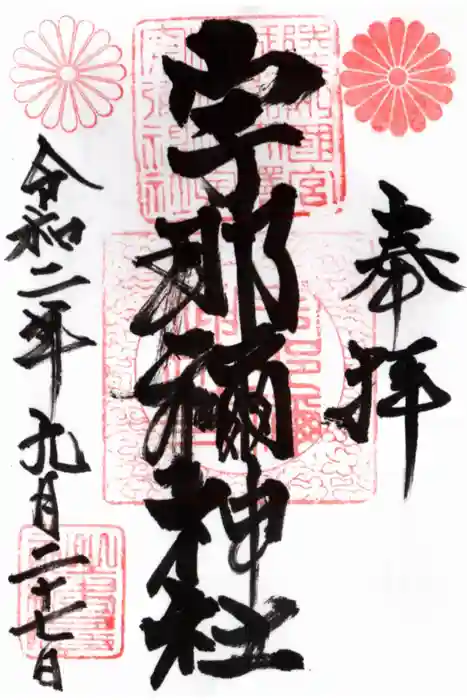 奉拝
宇那禰神社
令和二年九月二十七日